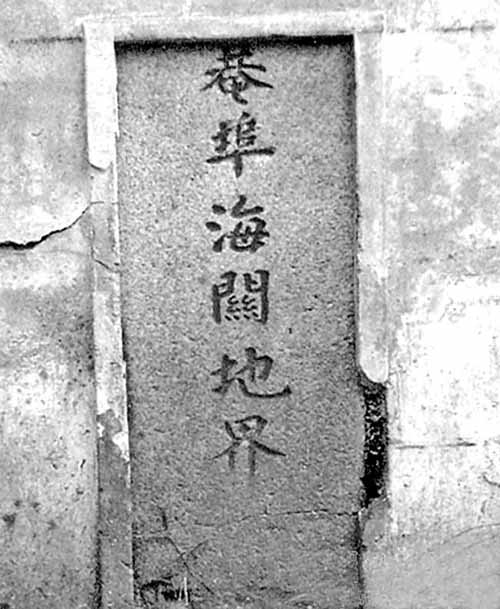 菴埠海關地界